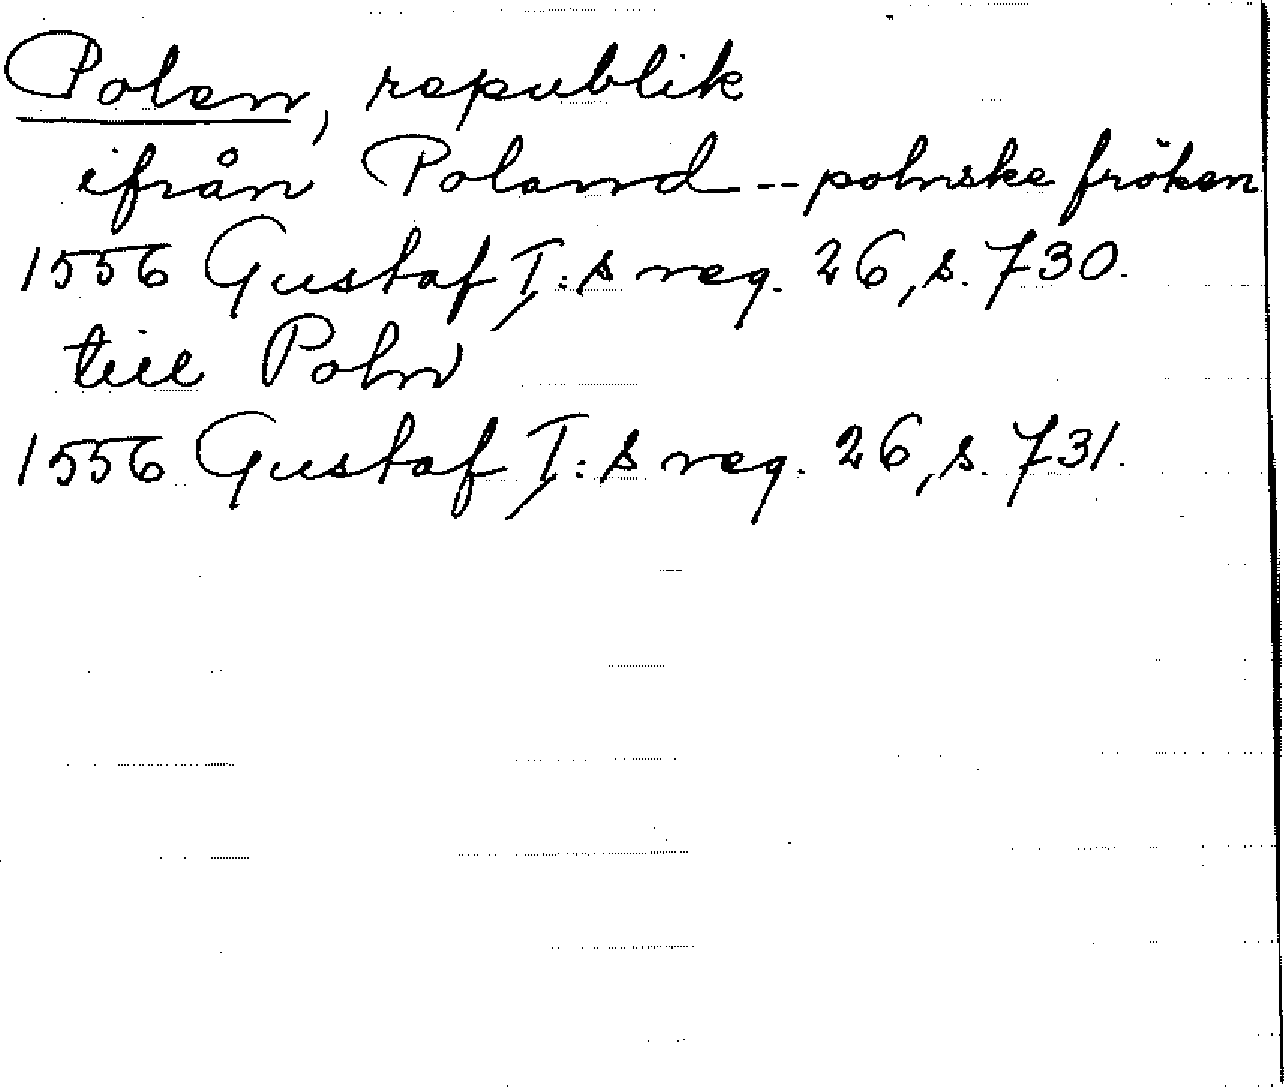 Polen, republik
ifrån Poland -- polnske fröken
1556 Gustaf I:s reg. 26, s. 730.
till Poln
1556 Gustaf I:s reg. 26, s. 731.